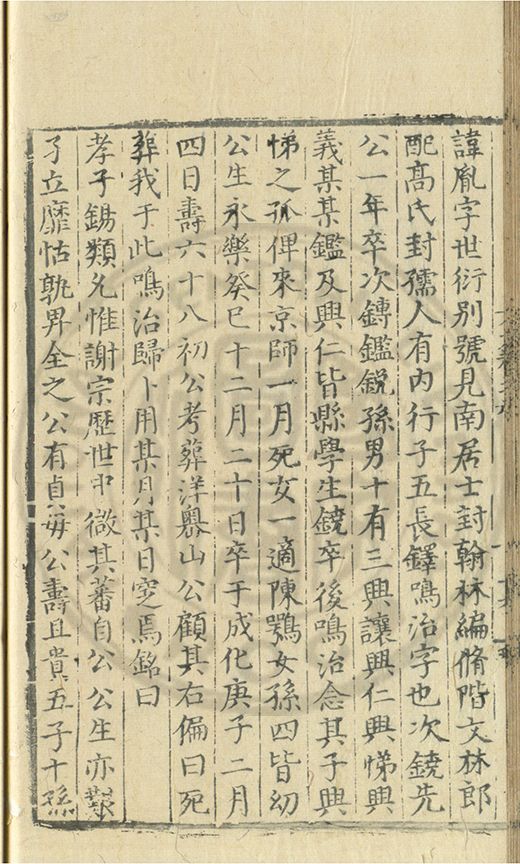 諱胤字世衍別號見南居士封翰林編脩階文林郎
配高氏封孺人有內行子五長鐸鳴治字也次鐃先
公一年卒次鏄鑑銳孫男十有三興讓興仁興悌興
義某某鑑及興仁皆縣學生鐃卒後鳴治念其子興
悌之孤俾來京師一月死女一適陳鶚女孫四皆幼
公生永樂癸巳十二月二十日卒于成化庚子二月
四日壽六十八初公考葬洋嶴山公顧其右偏曰死
葬我于此鳴治歸卜用某月某日窆焉銘曰
孝子錫類允惟謝宗歷世中微其蕃自公公生亦煢
孑立靡怙孰畀全之公有貞母公壽且貴五子十孫